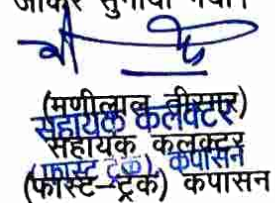 जाकर सुनाया गया।
(मणीलाल तीरगर)
सहायक कलेक्टर
सहायक कलक्टर
(फास्ट ट्रेक) कपासन
(फास्ट-ट्रेक) कपासन